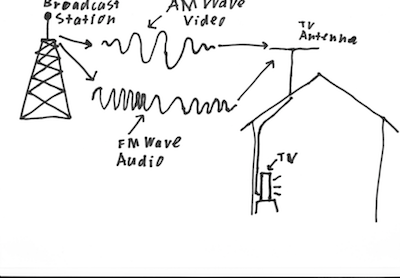 Broadcast
Station
AM Wave
Video
TV
Antenna
FM Wave
Audio
TV